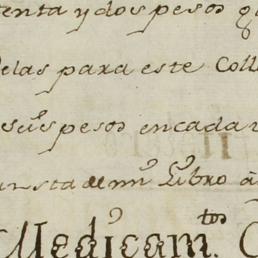 enta y dos pesos q
elas para este Coll
sus pesos en cada u
onsta de mi Libro â
Medicam.tos C